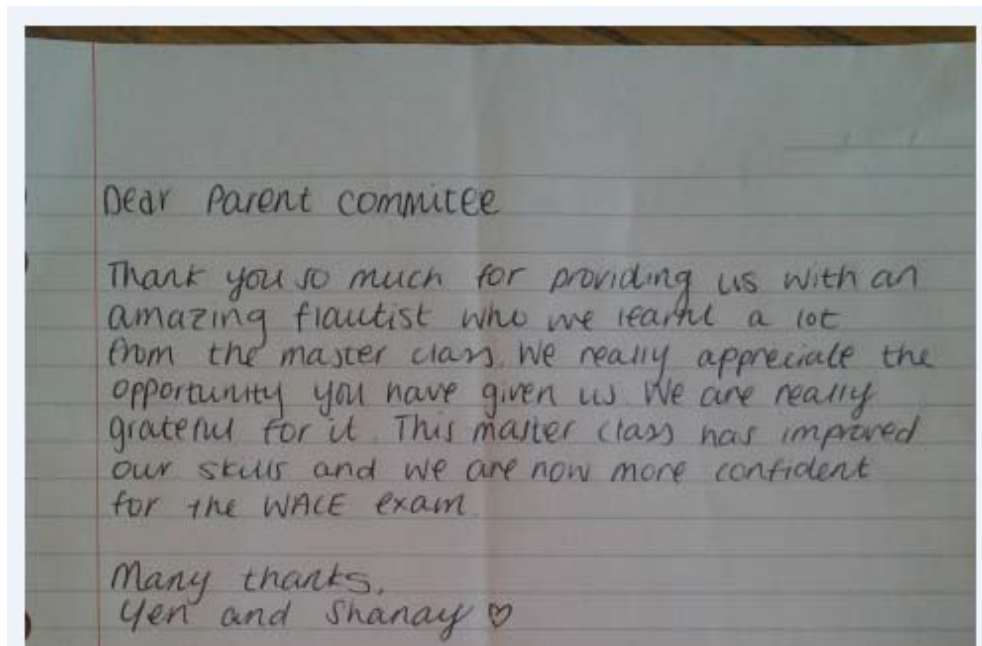 Dear Parent commitee
Thank you so much for providing us with an
amazing flautist who we learnt a lot
from the master class. We really appreciate the
opportunity you have given us. We are really
grateful for it. This master class has improved
our skills and we are now more confident
for the WACE exam.
Many thanks,
Yen and Shanay ♡